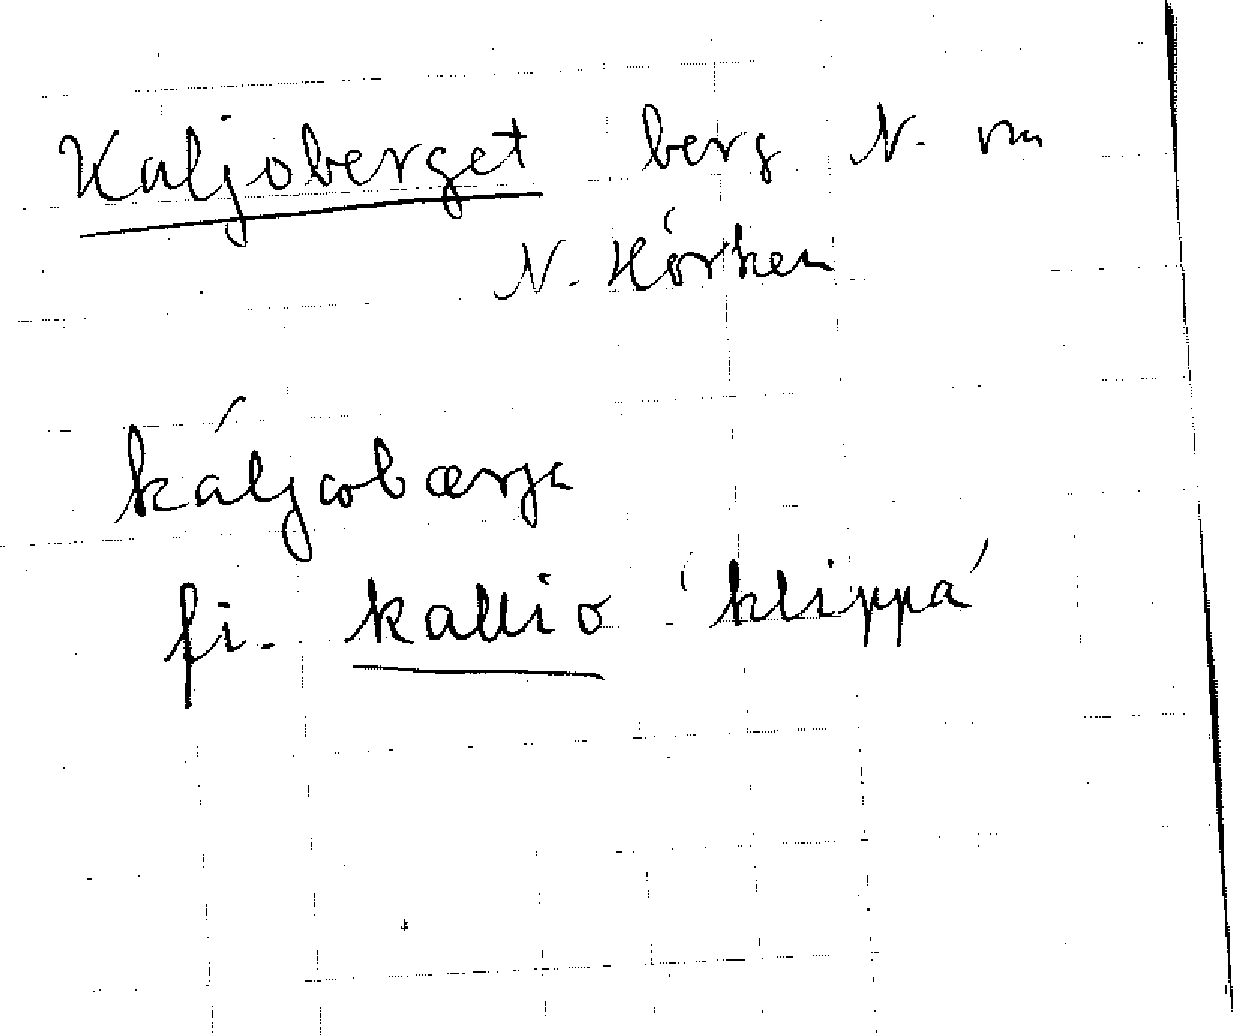 Kaljoberget berg N. om
N. Hörken
káljωbærjɩ
fi. kallio 'klippa'